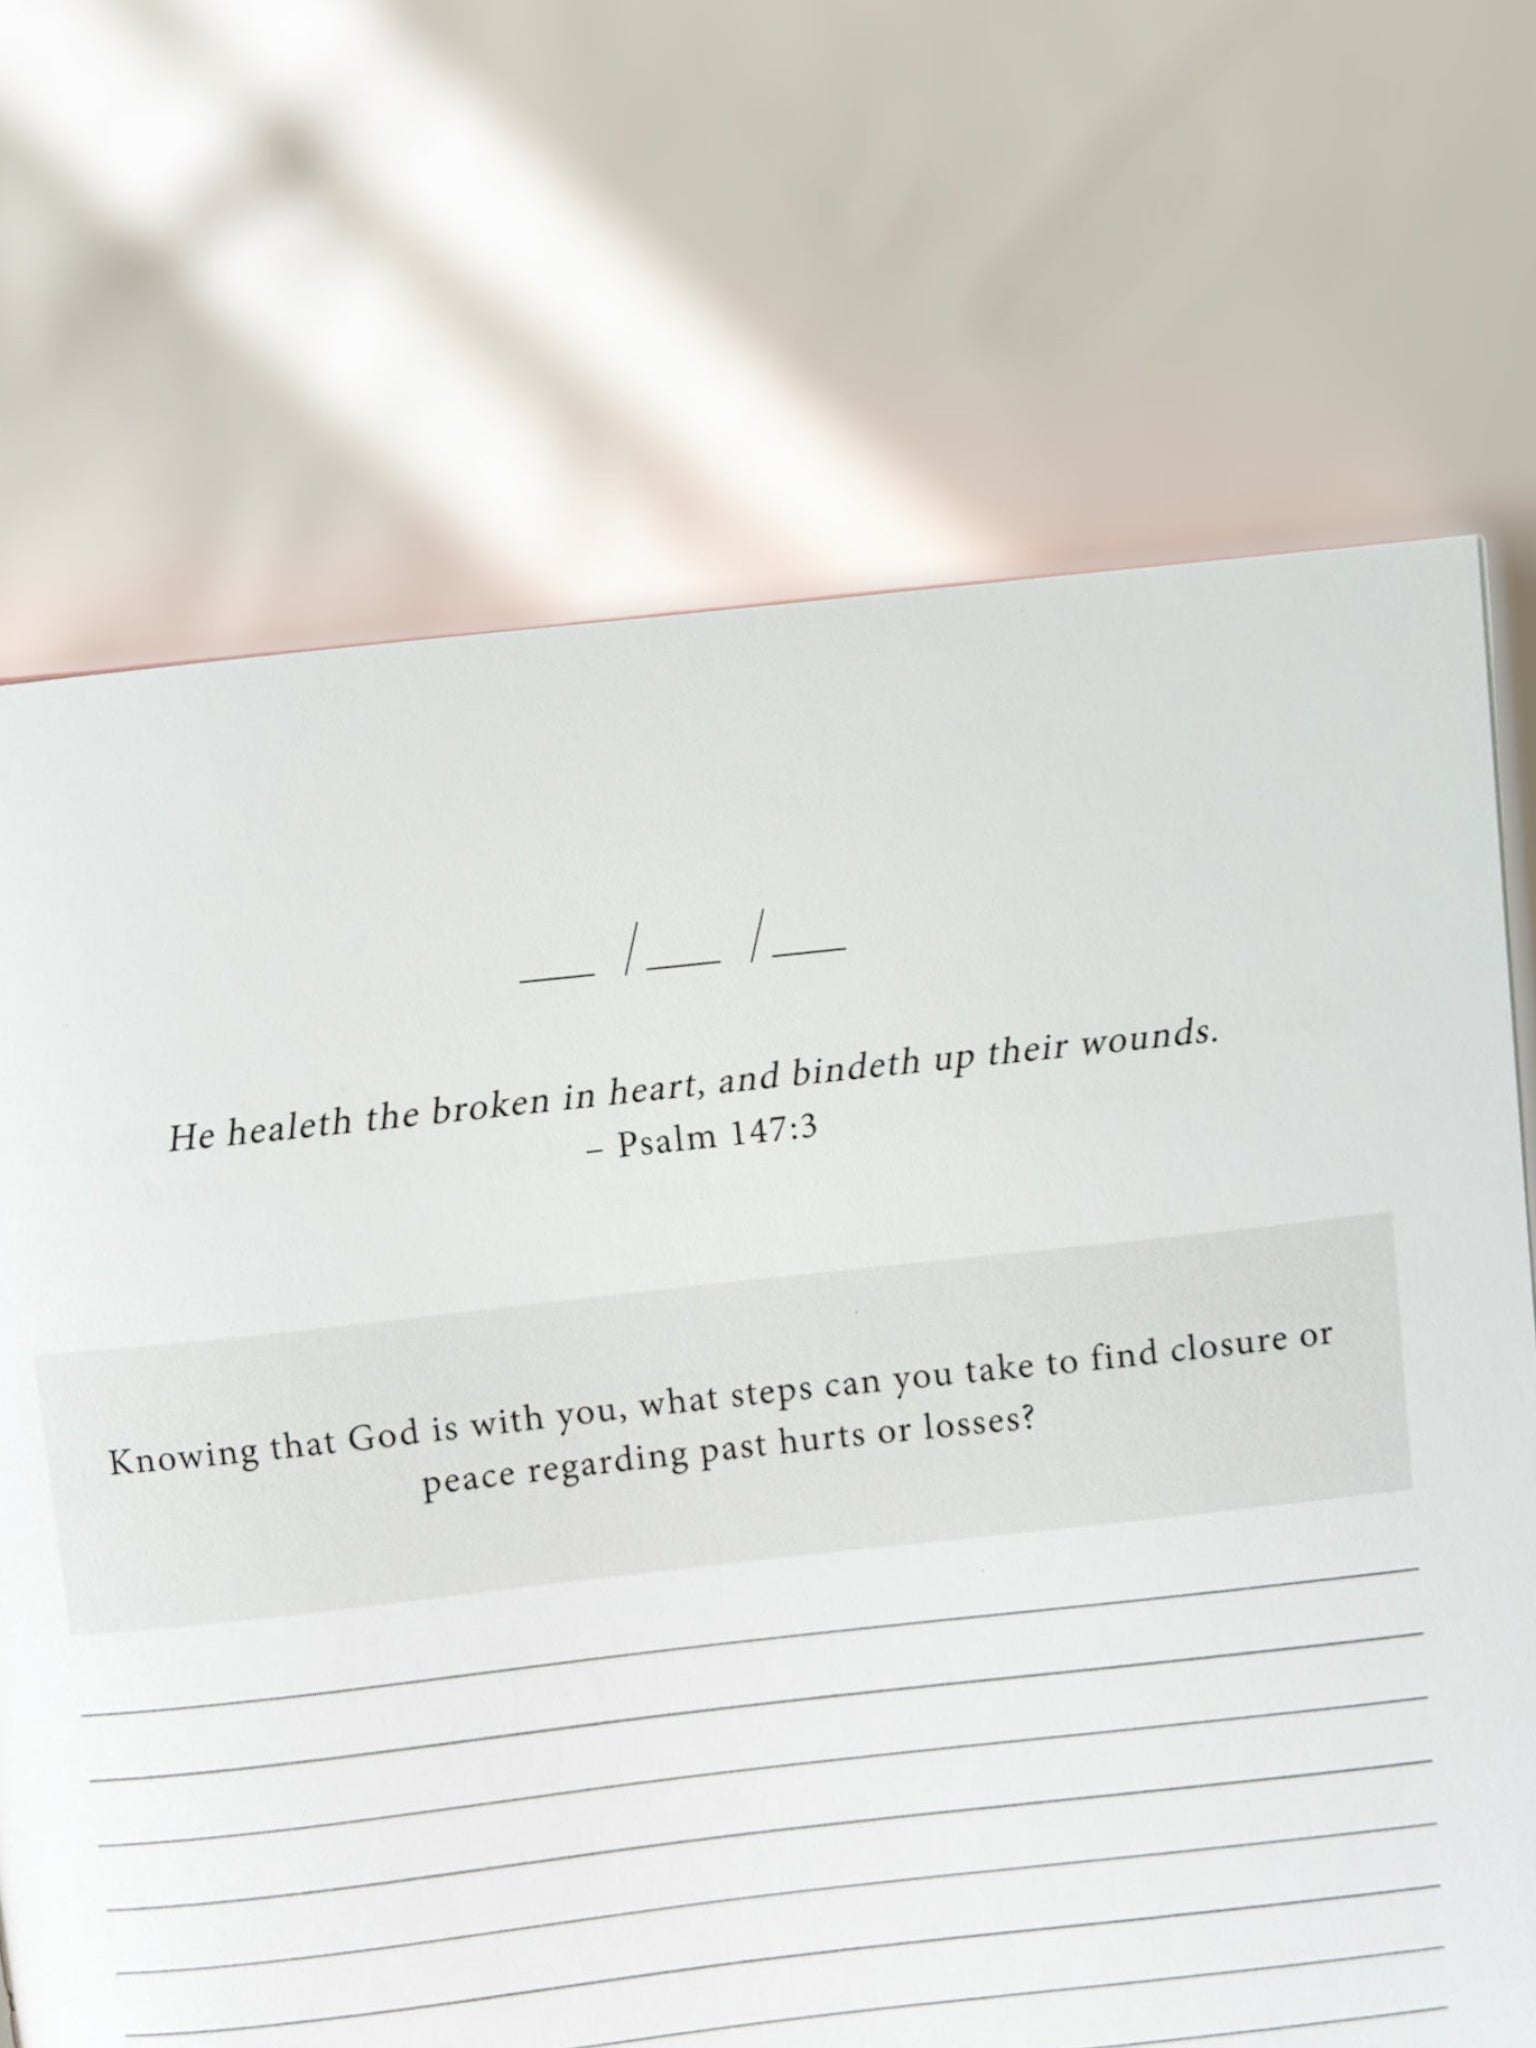 __ /__ /__
He healeth the broken in heart, and bindeth up their wounds.
– Psalm 147:3
Knowing that God is with you, what steps can you take to find closure or
peace regarding past hurts or losses?